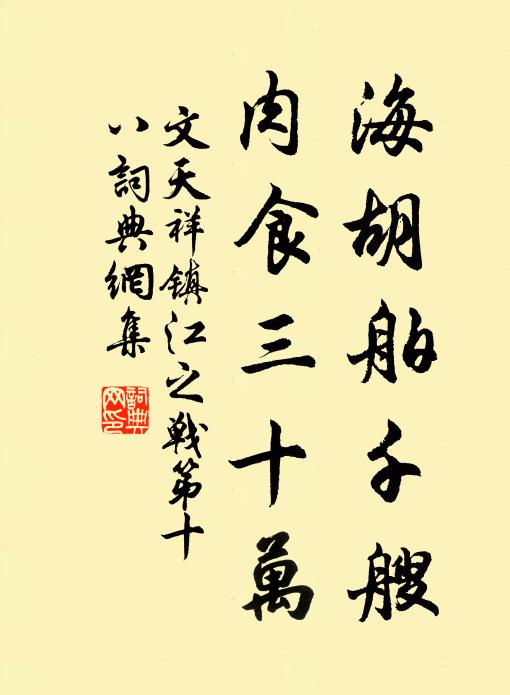 海胡舶千艘
肉食三十萬
文天祥镇江之戰第十
八詞典網集
詞典
网印